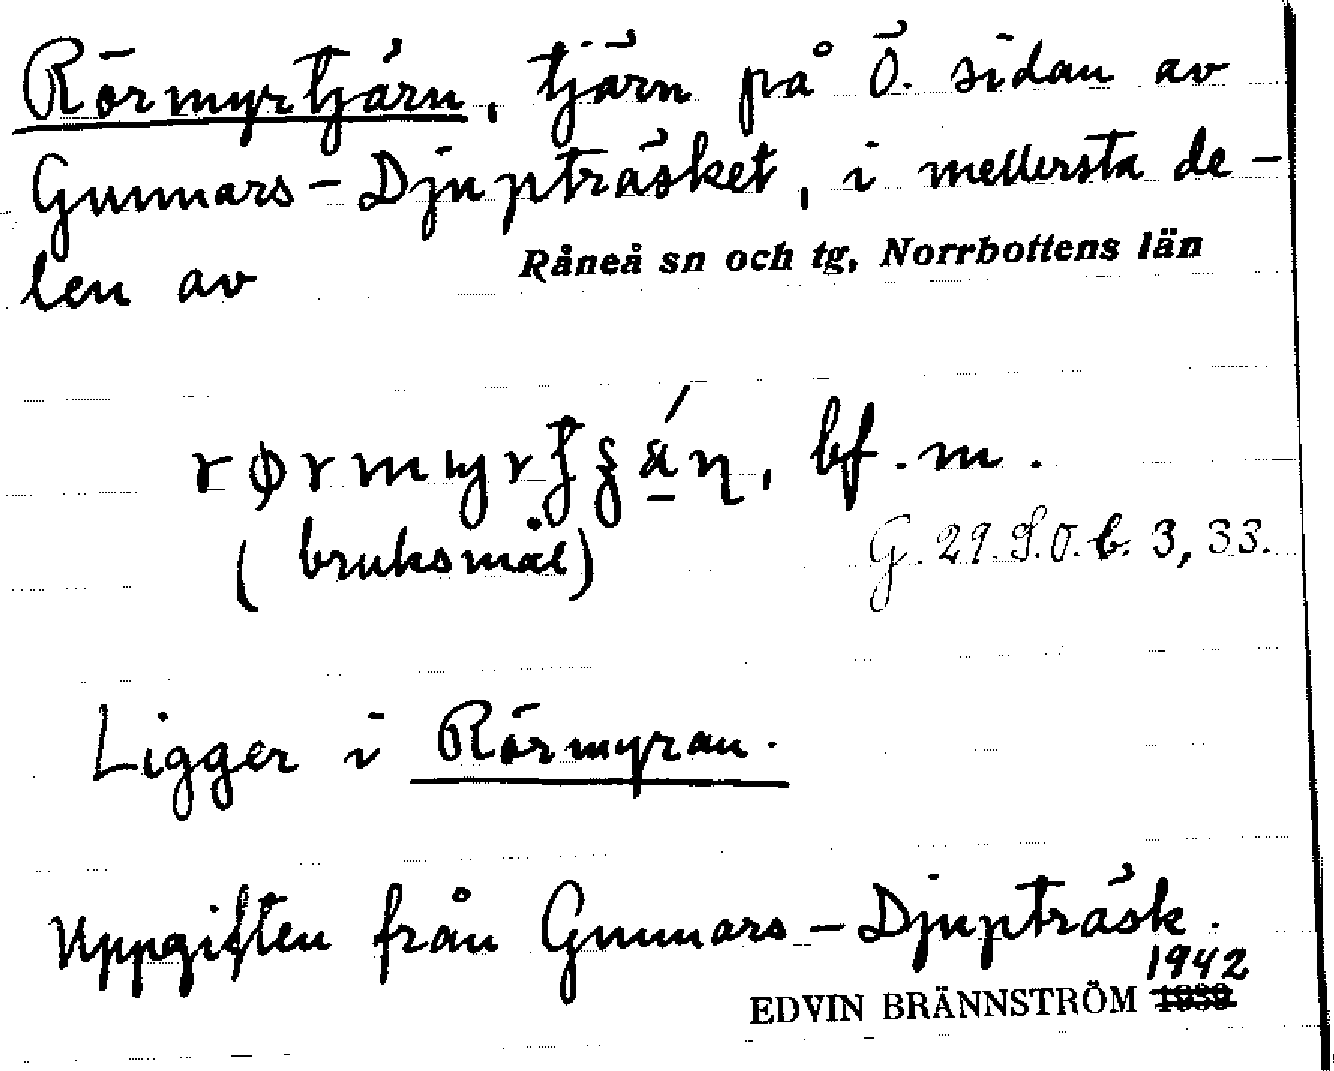 Rörmyrtjärn, tjärn på Ö. sidan av
Gunnars-Djupträsket, i mellersta de-
len av
Råneå sn och tg, Norrbottens län
bf. m.
(bruksmål)
G. 29. S.O. b. 3, 33.
Ligger i Rörmyran.
Uppgiften från Gunnars-Djupträsk.
1942
EDVIN BRÄNNSTRÖM 1939